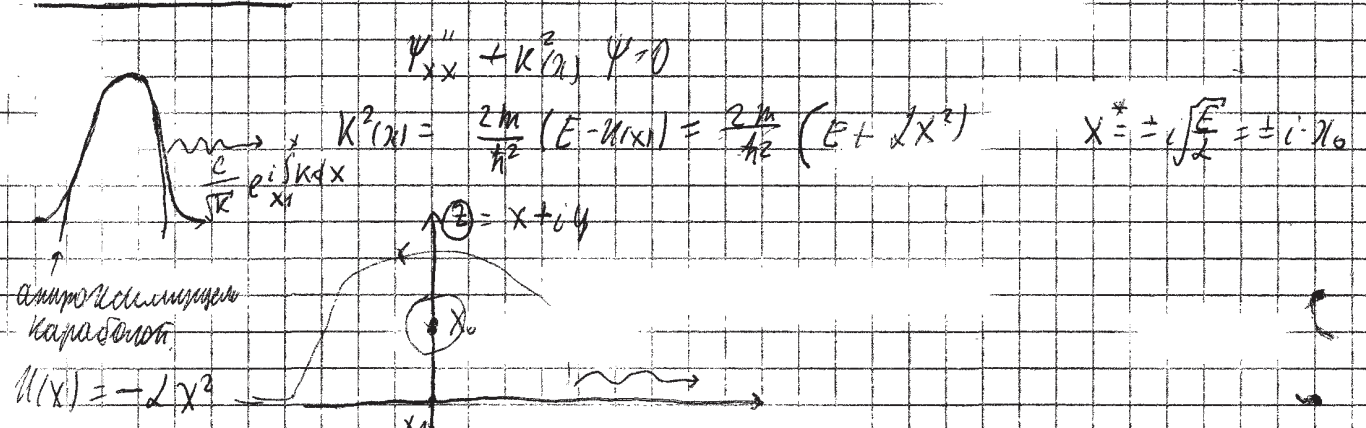 ψ''ₓₓ + K²(x) ψ = 0
K²(x) = 2m/ħ² (E - U(x)) = 2m/ħ² (E + αx²)
x* = ± i√(E/α) = ± i·x₀
C/√K e^{i∫_{x₁}^{x} K dx}
z = x + iy
аппроксимируем
параболой
x₀
U(x) = -αx²
x₁